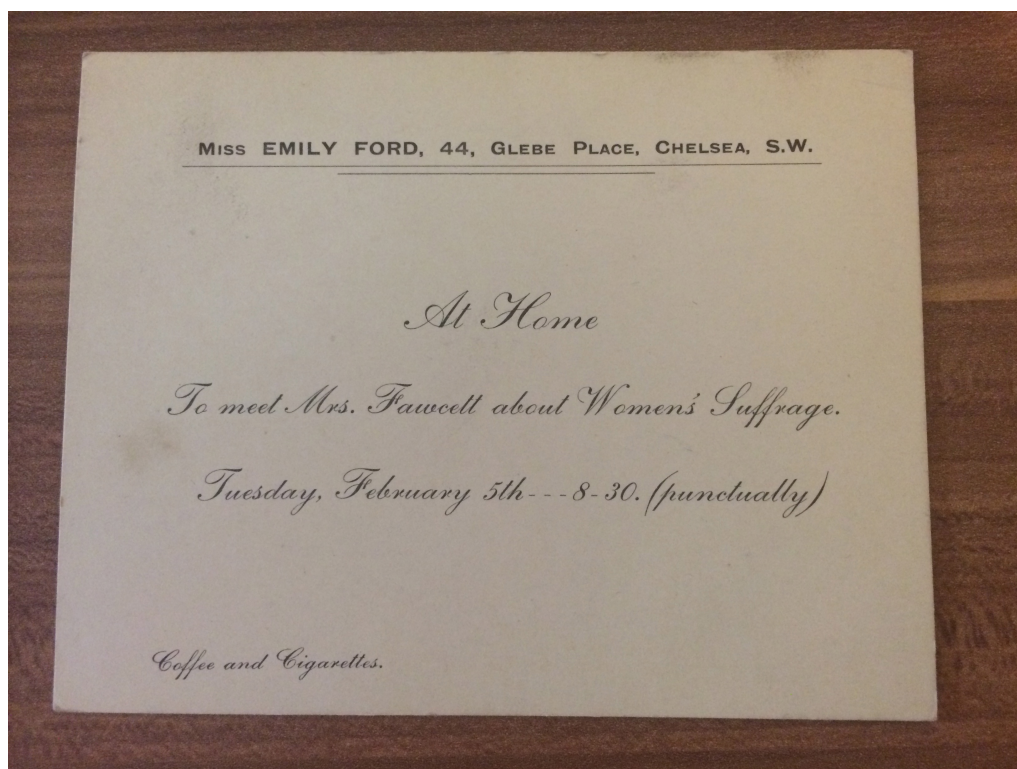 Miss EMILY FORD, 44, Glebe Place, Chelsea, S.W.
At Home
To meet Mrs. Fawcett about Women's Suffrage.
Tuesday, February 5th---8-30. (punctually)
Coffee and Cigarettes.